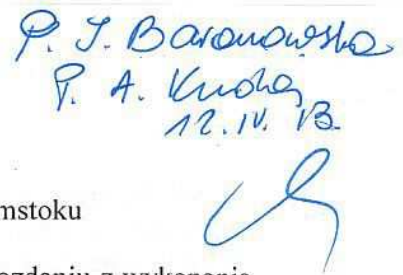 P. J. Baranowska
P. A.
12.IV.13.
mstoku
ozdaniu z wykonania